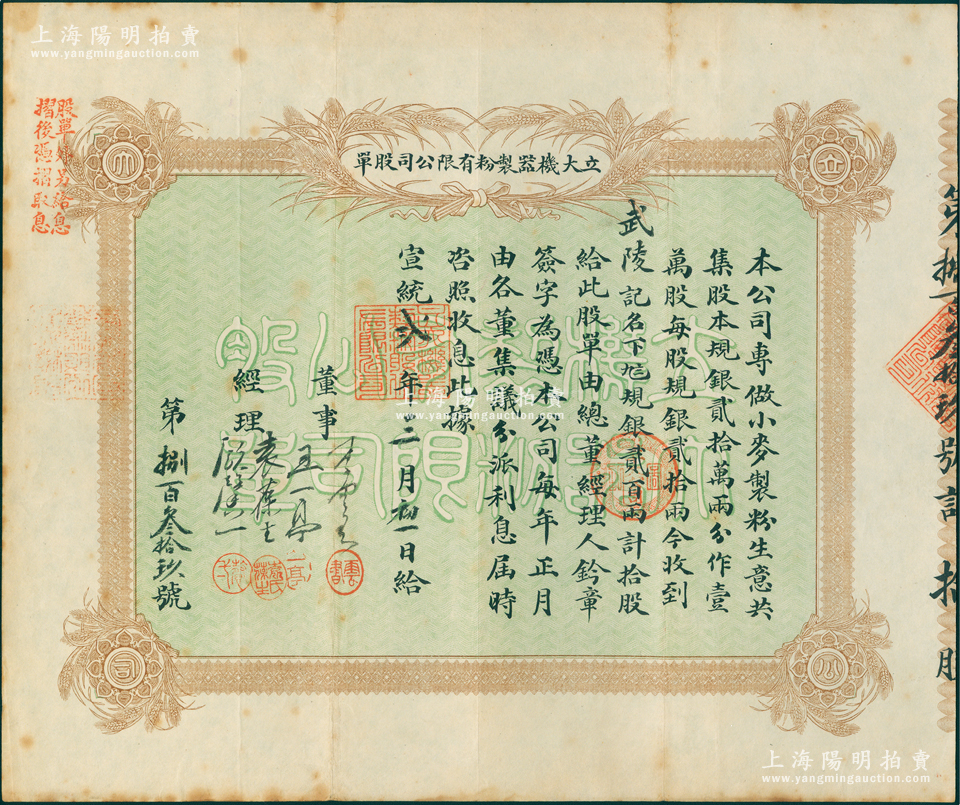 上海陽明拍賣
www.yangmingauction.com
立大機器製粉有限公司股單
立
大
公
司
本公司專做小麥製粉生意共
集股本規銀貳拾萬兩分作壹
萬股每股規銀貳拾兩今收到
武陵記名下九八規銀貳百兩計拾股
給此股單由總董經理人鈐章
簽字為憑本公司每年正月
由各董集議分派利息屆時
沓照收息此據
宣統貳年十二月初一日給
董事
王一亭
經理
顧馨一
第捌百叁拾玖號
股單
另給息
摺後憑摺取息
第捌百叁拾玖號計拾股
上海陽明拍賣
www.yangmingauction.com
上海陽明拍賣
www.yangmingauction.com